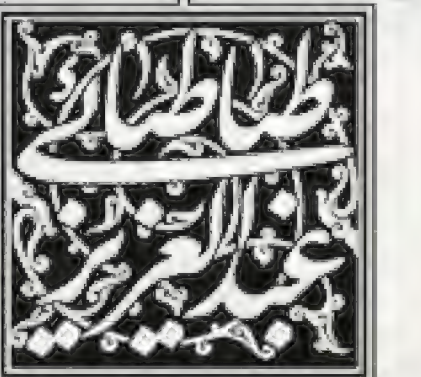 عبدالعزيز
طباطبائى